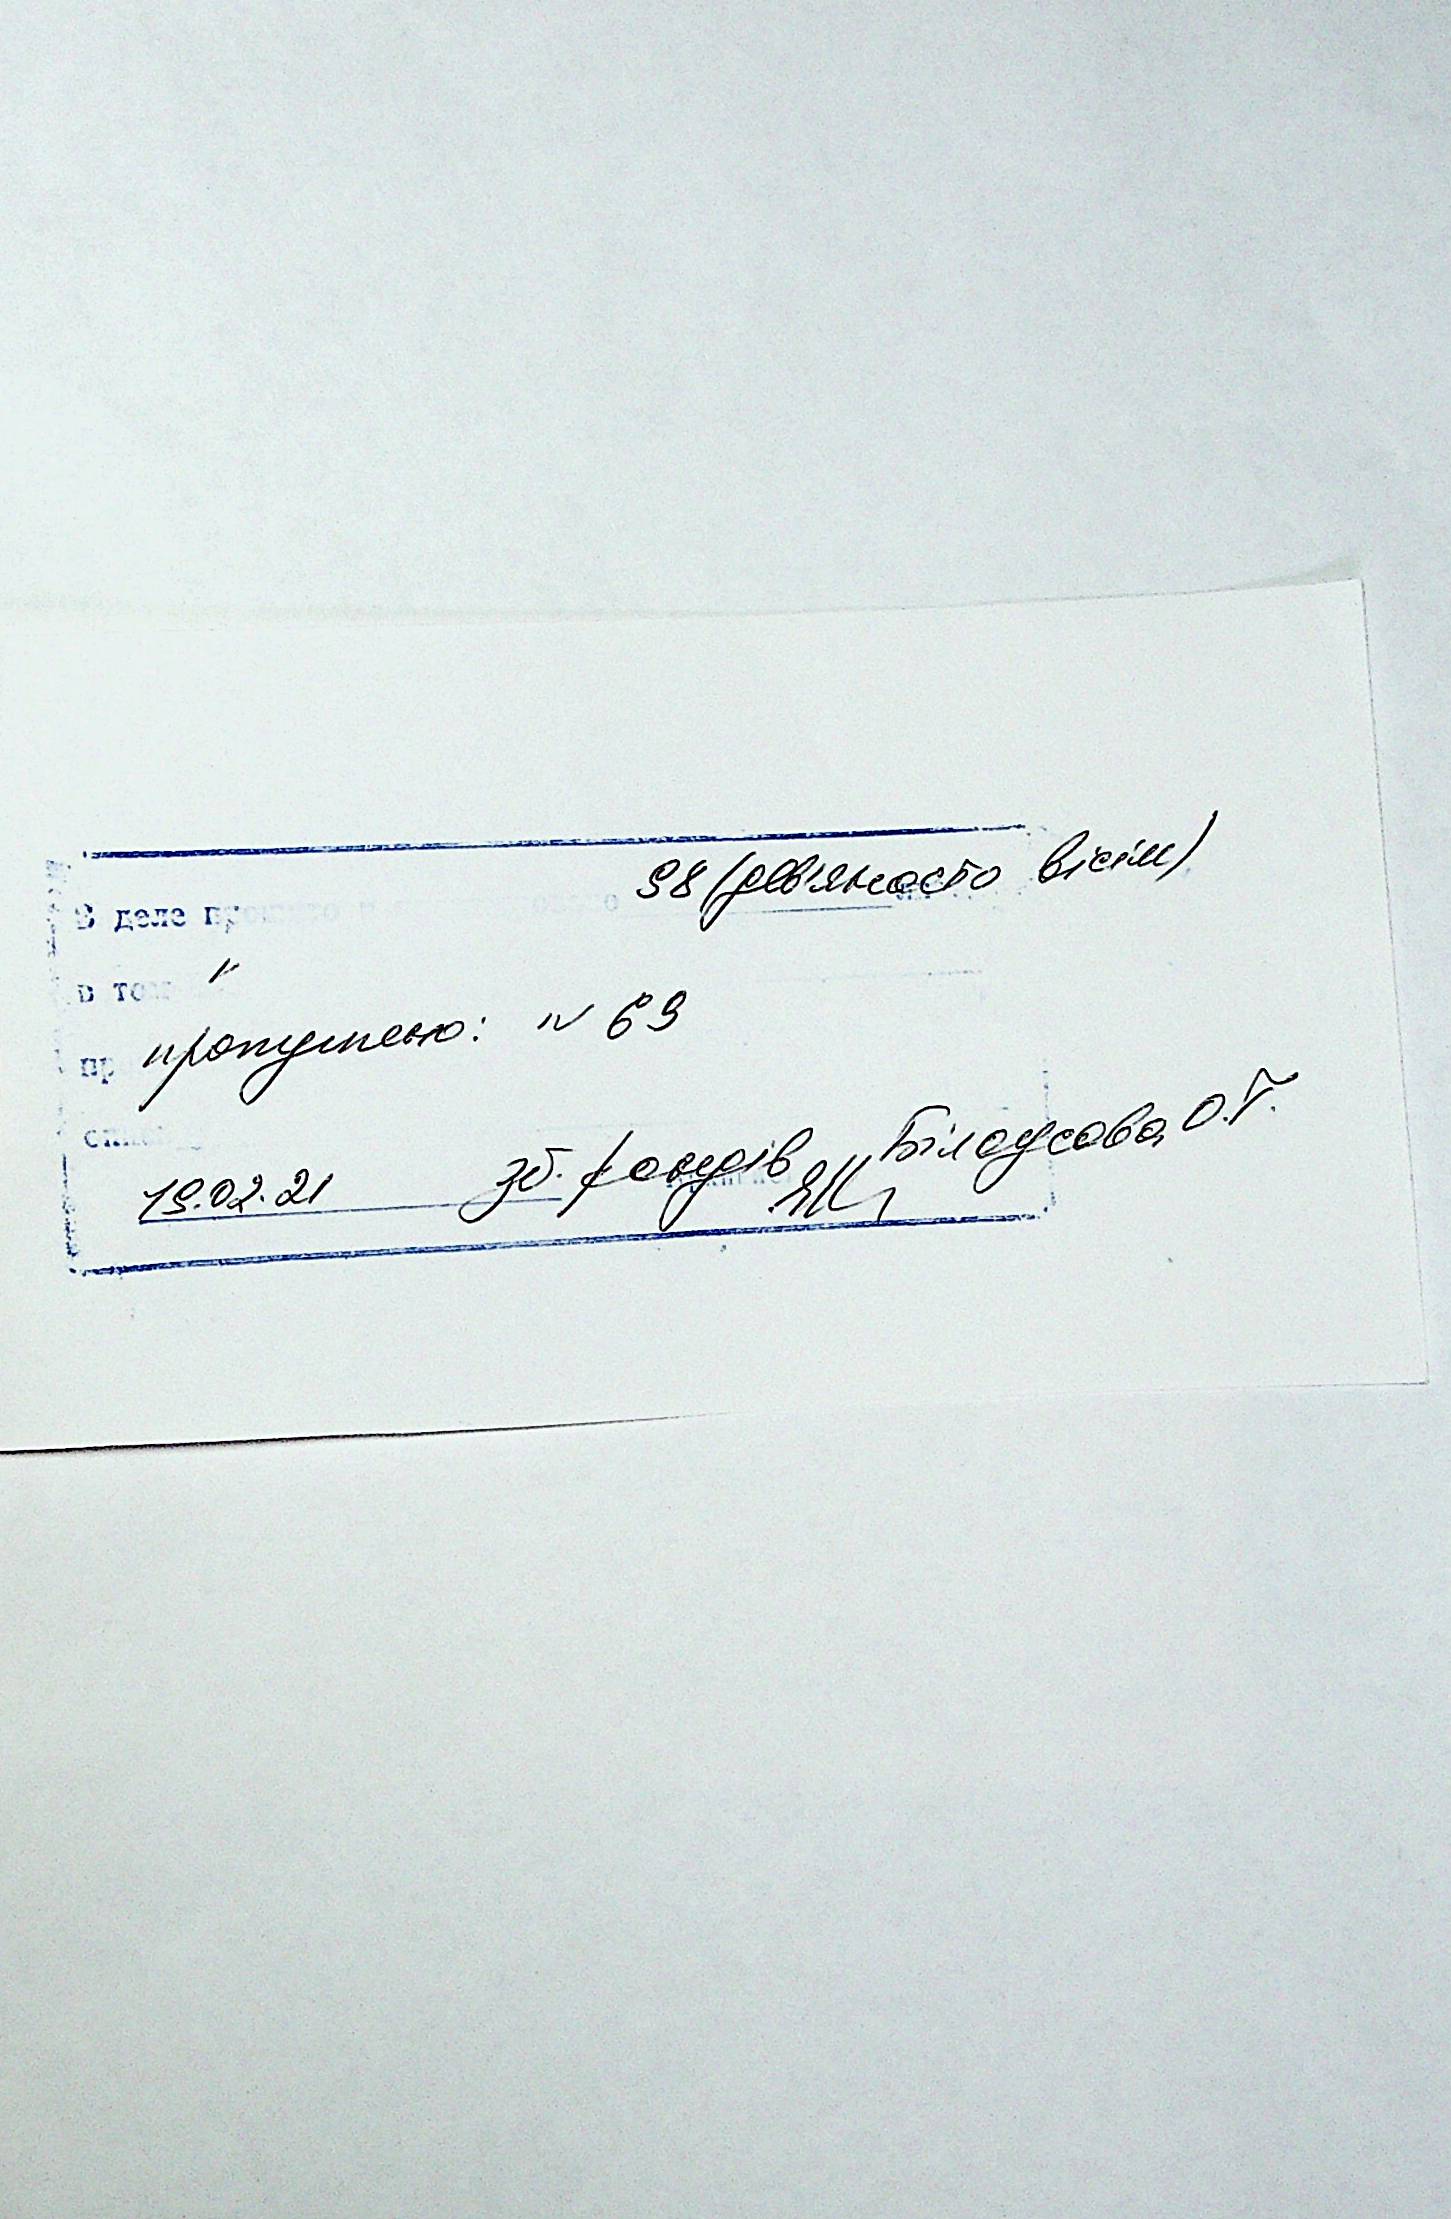 В деле прошито и 98 (дев'яносто вісім)
в том
пропущено: № 69
19.02.21 зб. фондів Білоусова О.Г.